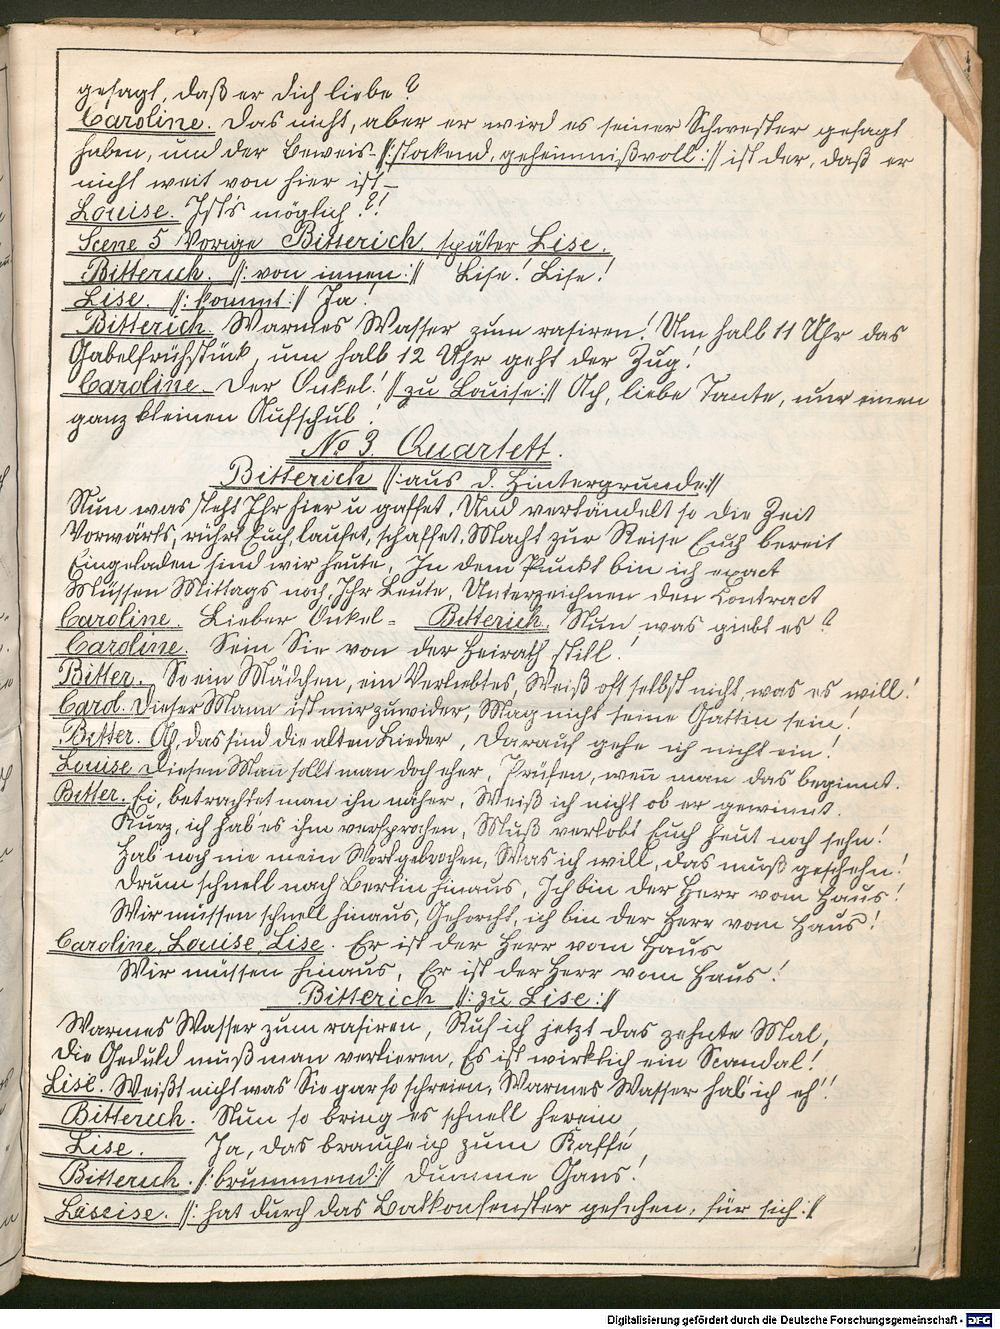 gesagt, daß er dich liebe?
Caroline. Das nicht, aber er wird es seiner Schwester gesagt
haben, und der Beweis- //: stockend, geheimnißvoll :// ist der, daß er
nicht weit von hier ist –
Louise. Ist's möglich?!
Scene 5 Vorige Bitterich, später Lise.
Bitterich. //: von innen :// Lise! Lise!
Lise. //: kommt :// Ja!
Bitterich. Warmes Wasser zum rasiren! Um halb 11 Uhr das
Gabelfrühstück, um halb 12 Uhr geht der Zug!
Caroline. Der Onkel! // zu Louise :// Ach, liebe Tante, nur einen
ganz kleinen Aufschub!
No 3 Quartett.
Bitterich //: aus d. Hintergrunde ://
Nun was steht Ihr hier u gaffet, Und vertändelt so die Zeit
Vorwärts, rührt Euch, laufet, schaffet, Macht zur Reise Euch bereit
Eingeladen sind wir heute, In dem Punkt bin ich exact
Müssen Mittags noch, Ihr Leute, Unterzeichnen den Contract
Caroline. Lieber Onkel - Bitterich. Nun was giebt es?
Caroline. Sein Sie von der Heirath still!
Bitter. So ein Mädchen, ein Verliebtes, Weiß oft selbst nicht, was es will!
Carol. Dieser Mann ist mir zuwider, Mag nicht seine Gattin sein!
Bitter. Ach, das sind die alten Lieder, darauf gehe ich nicht ein!
Louise Diesen Mañ sollt man doch eher, Prüfen, weñ man das beginnt.
Bitter. Ei, betrachtet man ihn näher, Weiß ich nicht ob er gewinnt.
Kurz, ich hab' es ihm versprochen, Muß verlobt Euch heut noch sehn!
Hab noch nie mein Wort gebrochen, Was ich will, das muß geschehn!
Drum schnell nach Berlin hinaus, Ich bin der Herr vom Haus!
Wir müssen schnell hinaus, Gehorcht, ich bin der Herr vom Haus!
Caroline, Louise, Lise. Er ist der Herr vom Haus
Wir müssen hinaus, Er ist der Herr vom Haus!
Bitterich //: zu Lise ://
Warmes Wasser zum rasiren, Ruf ich jetzt das zehnte Mal,
Die Geduld muß man verlieren, Es ist wirklich ein Scandal!
Lise. Weißt nicht was Sie gar so schreien, Warmes Wasser hab' ich eh'!
Bitterich. Nun so bring es schnell herein,
Lise. Ja, das brauche ich zum Kaffé,
Bitterich. //: brummend :// dumme Gans!
Louise. //: hat durch das Balkonfenster gesehen, für sich ://
Digitalisierung gefördert durch die Deutsche Forschungsgemeinschaft - DFG